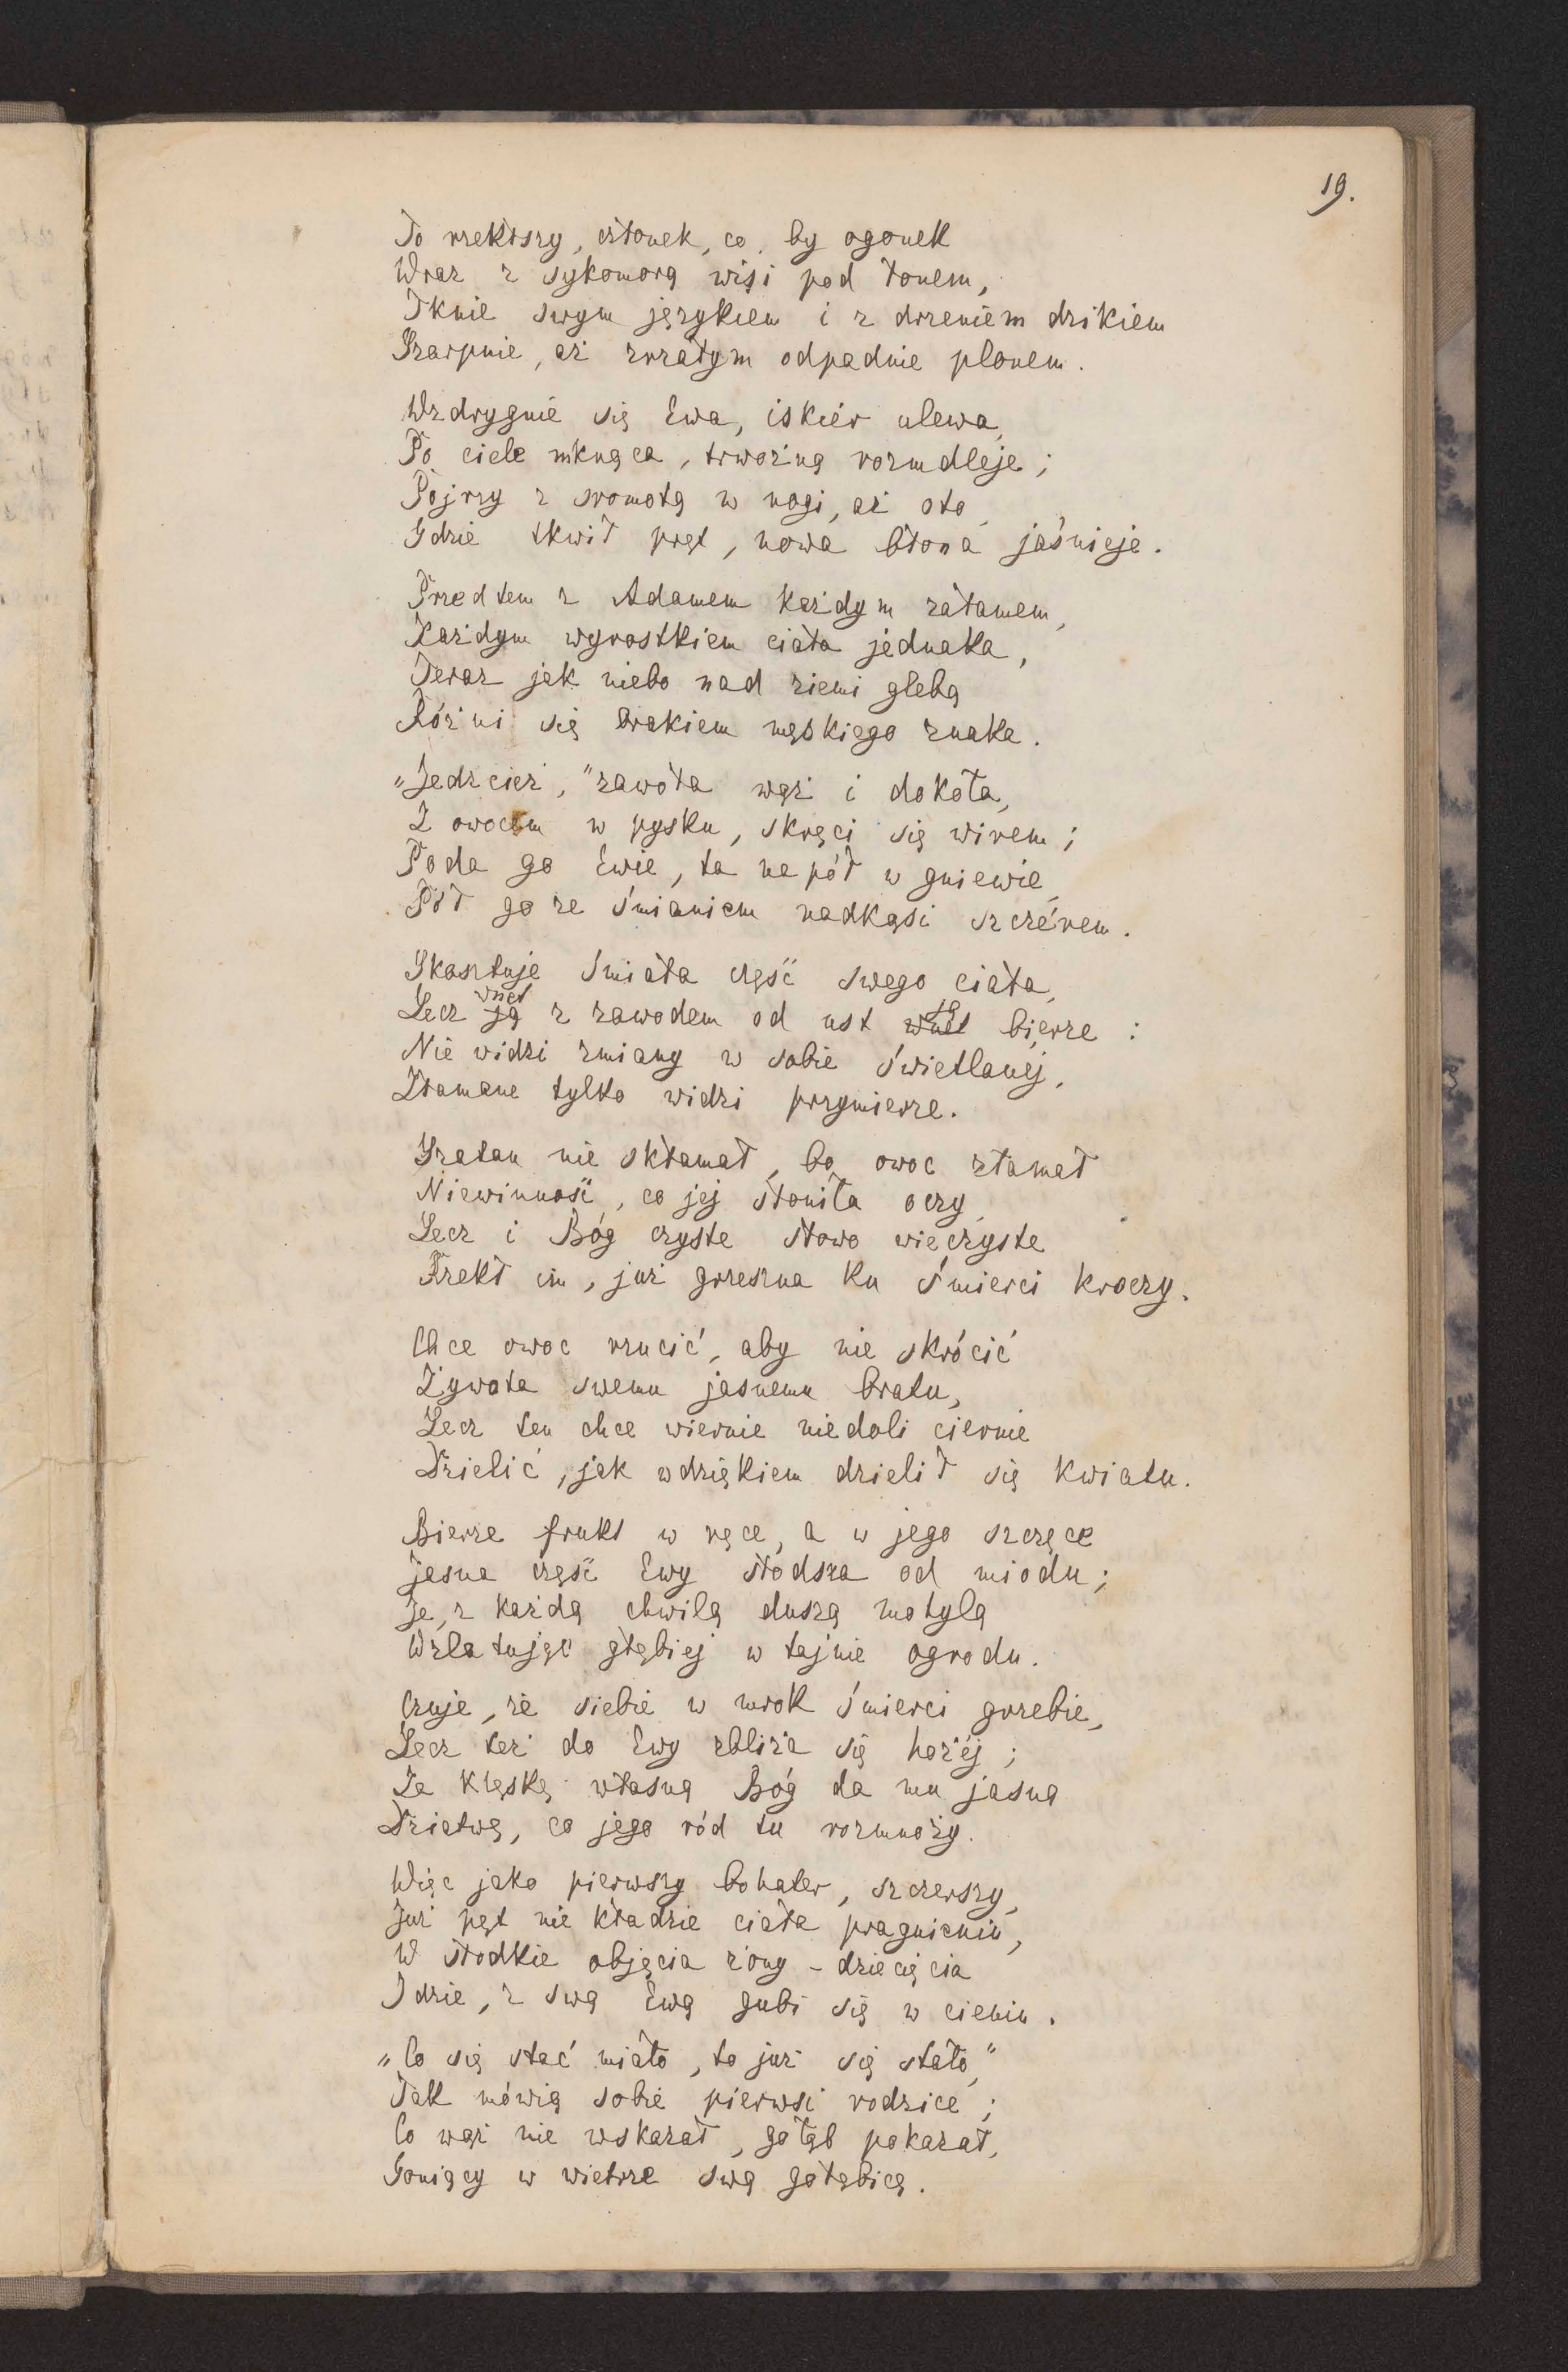 19.
To rzekłszy, członek, co by ogonek
Wraz z sykomorą wisi pod łonem,
Tknie swym językiem i z drżeniem dzikiem
Szarpnie, aż zżżatym odpadnie plonem.
Wzdrygnie się Ewa, iskiér ulewa,
Po ciele mknąca, trwożną rozmdleje;
Pojrzy z sromotą w nogi, aż oto,
Gdzie tkwił pręt, nowa błona jaśnieje.
Przedtem z Adamem każdym załamem,
Każdym wyrostkiem ciała jednaka,
Teraz jak niebo nad ziemi glebą
Różni się brakiem męskiego znaka.
„Jedzcież," zawoła wąż i dokoła,
Z owocem w pysku, skręci się wirem;
Poda go Ewie, ta na pół w gniewie,
Pół go ze śmianiem nadkąsi szczérem.
Skosztuje śmiała część swego ciała,
Lecz wnet z zawodem od ust ją bierze:
Nie widzi zmiany w sobie świetlanéj,
Złamane tylko widzi przymierze.
Szatan nie skłamał, bo owoc złamał
Niewinność, co jej słoniła oczy,
Lecz i Bóg czyste słowo wieczyste
Rzekł im, już grzeszna ku śmierci kroczy.
Chce owoc rzucić, aby nie skrócić
Żywota swemu jasnemu bratu,
Lecz ten chce wiernie niedoli ciernie
Dzielić, jak wdziękiem dzielił się kwiatu.
Bierze frukt w ręce, a w jego szczęce
Jasna część Ewy słodsza od miodu;
Je, z każdą chwilą duszą motylą
Wzlatując głębiej w tajnie ogrodu.
Czuje, że siebie w mrok śmierci grzebie,
Lecz też do Ewy zbliża się hożéj;
Za klęskę własną Bóg da mu jasną
Dziatwę, co jego ród tu rozmnoży.
Więc jako pierwszy bohater, szczerszy,
Już pęt nie kładzie ciała pragnieniu,
W słodkie objęcia żony - dziecięcia
Idzie, z swą Ewą gubi się w cieniu.
„Co się stać miało, to już się stało,"
Tak mówią sobie pierwsi rodzice;
Co wąż nie wskazał, gołąb pokazał,
Goniący w wietrze swą gołębicę.